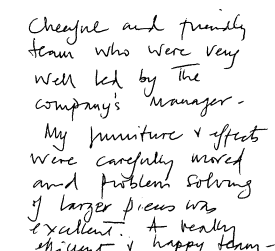 Cheerful and friendly
team who were very
well led by The
company's manager -
My furniture & effects
were carefully moved
and problem solving
of larger pieces was
excellent. A really
efficient & happy team -